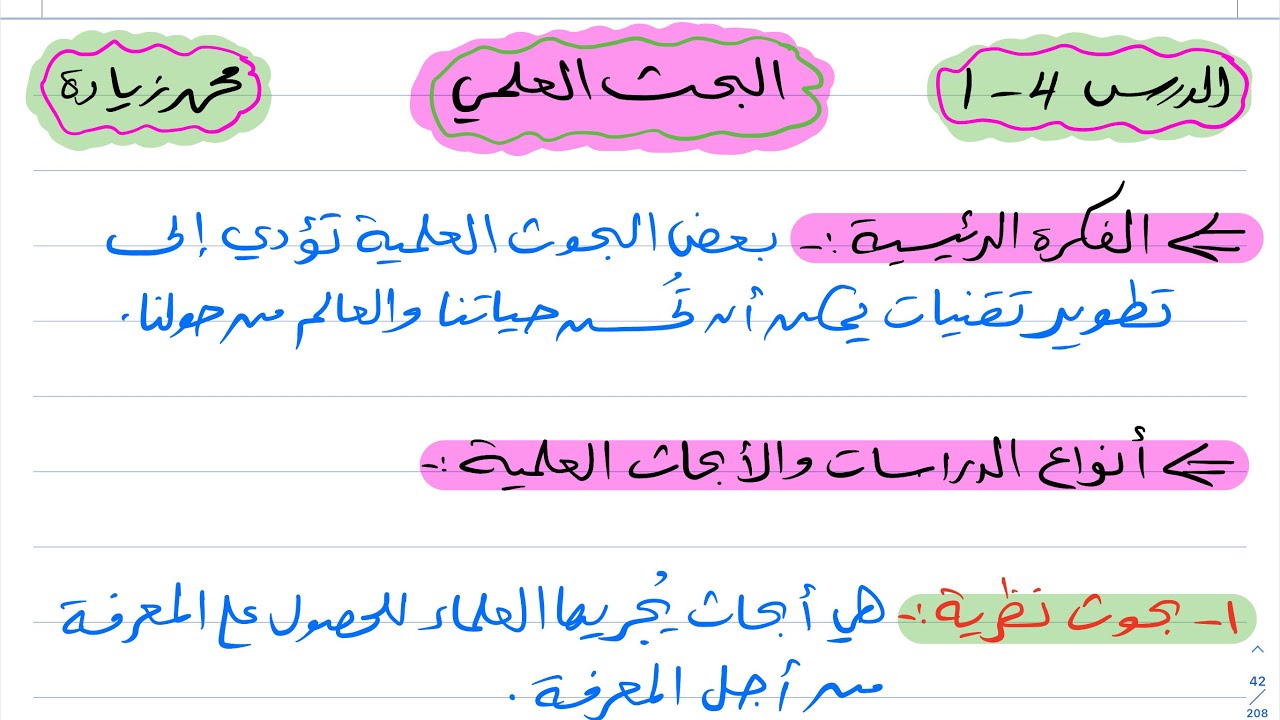 الدرس 4 - 1
البحث العلمي
محمد زيادة
الفكرة الرئيسية :- بعض البحوث العلمية تؤدي إلى
تطوير تقنيات يمكن أن تُحسن حياتنا والعالم من حولنا .
أنواع الدراسات والأبحاث العلمية :-
1- بحوث نظرية :- هي أبحاث يُجريها العلماء للحصول على المعرفة
من أجل المعرفة .
42
208